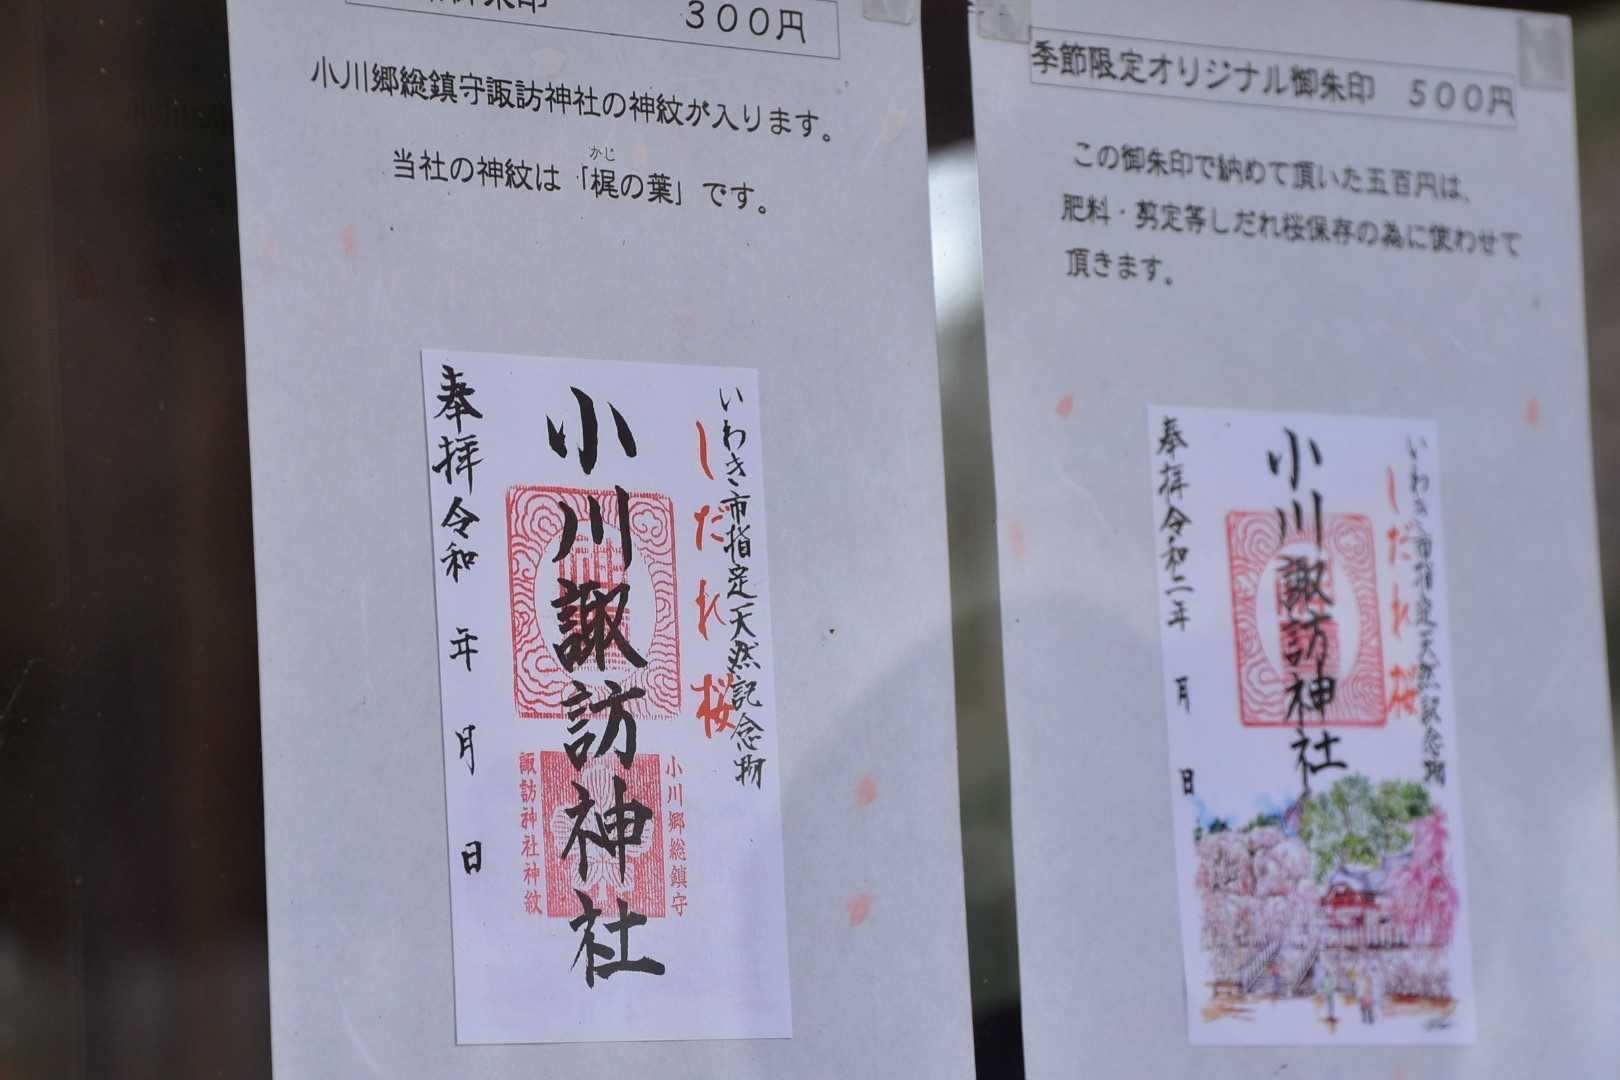 御朱印 300円
小川郷総鎮守諏訪神社の神紋が入ります。
かじ
当社の神紋は「梶の葉」です。
いわき市指定天然記念物
しだれ桜
小川諏訪神社
小川郷総鎮守
諏訪神社神紋
奉拝令和 年 月 日
季節限定オリジナル御朱印 500円
この御朱印で納めて頂いた五百円は、
肥料・剪定等しだれ桜保存の為に使わせて
頂きます。
いわき市指定天然記念物
しだれ桜
小川諏訪神社
奉拝令和二年 月 日